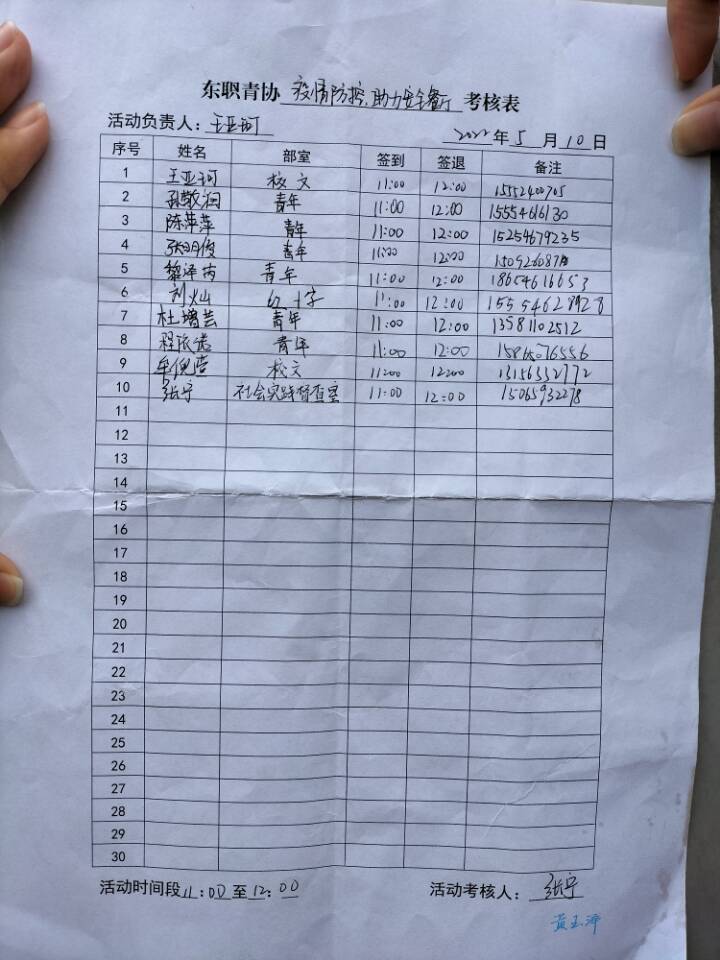 东职青协 疫情防控,助力安全餐厅 考核表
活动负责人：王亚珂 2022年5月10日
序号 姓名 部室 签到 签退 备注
1 王亚珂 校文 11:00 12:00
2 孙敬润 青年 11:00 12:00 15554616130
3 陈苹萍 青年 11:00 12:00 15254679235
4 张明俊 青年 11:00 12:00
5 青年 11:00 12:00 18654616653
6 刘灿 红十字 11:00 12:00 15554628928
7 杜增芸 青年 11:00 12:00 13581102512
8 程依诺 青年 11:00 12:00
9 校文 11:00 12:00 13156332772
10 张宇 社会实践督查室 11:00 12:00 15065932278
11
12
13
14
15
16
17
18
19
20
21
22
23
24
25
26
27
28
29
30
活动时间段11:00至12:00 活动考核人：张宇
黄玉萍